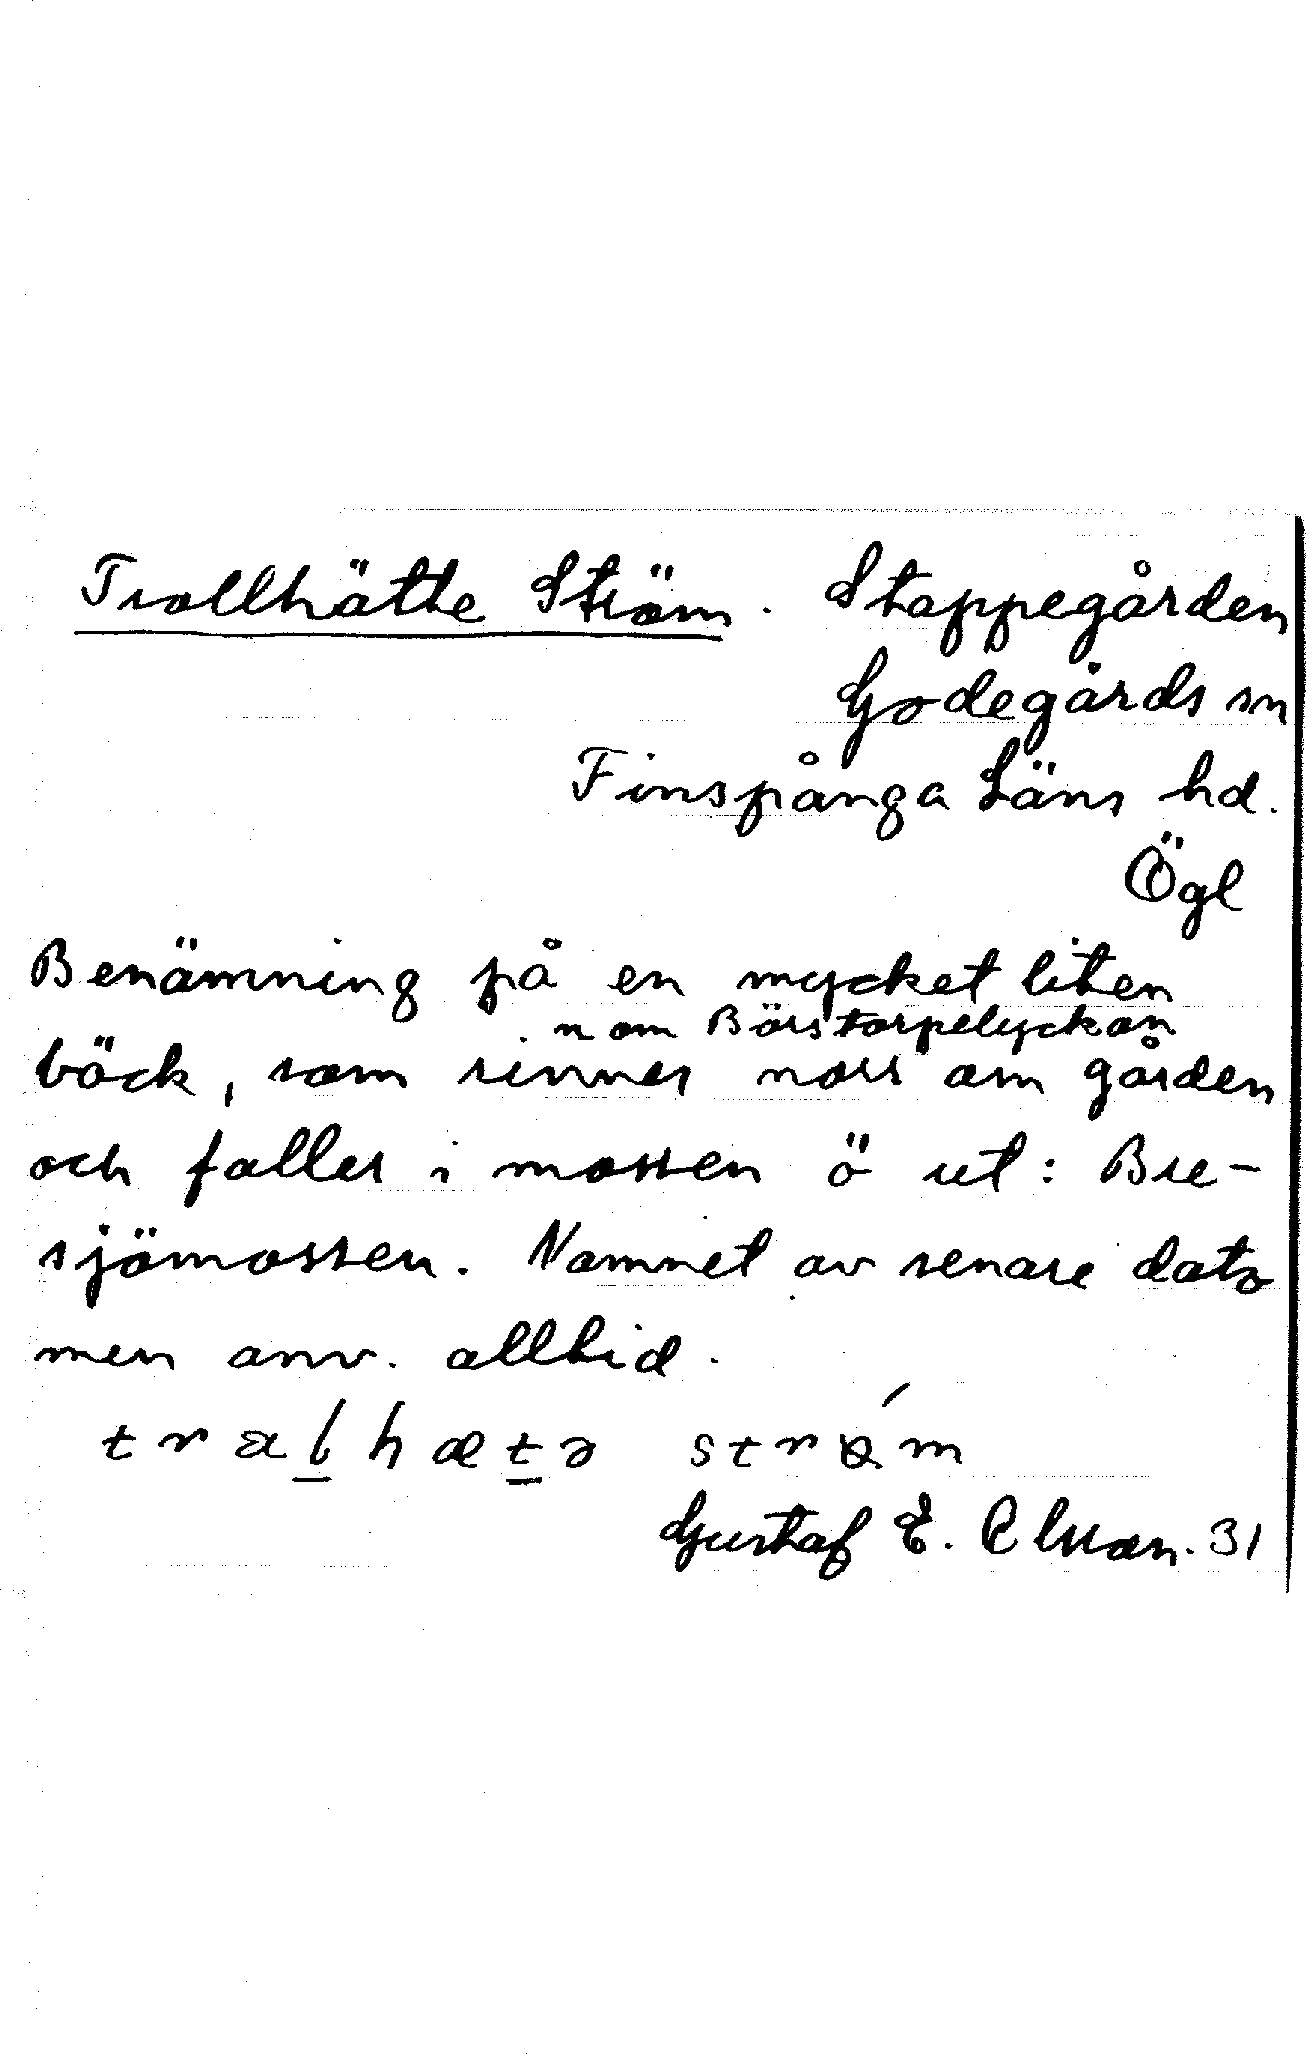 Trollhätte Ström. Stoppegården
Godegårds sn
Finspånga Läns hd.
Ögl
Benämning på en mycket liten
n om Börstorpelyckan
bäck, som rinner norr om gården
och faller i mossen ö ut: Bre-
sjömossen. Namnet av senare dato
men anv. alltid.
Gustaf E. 31